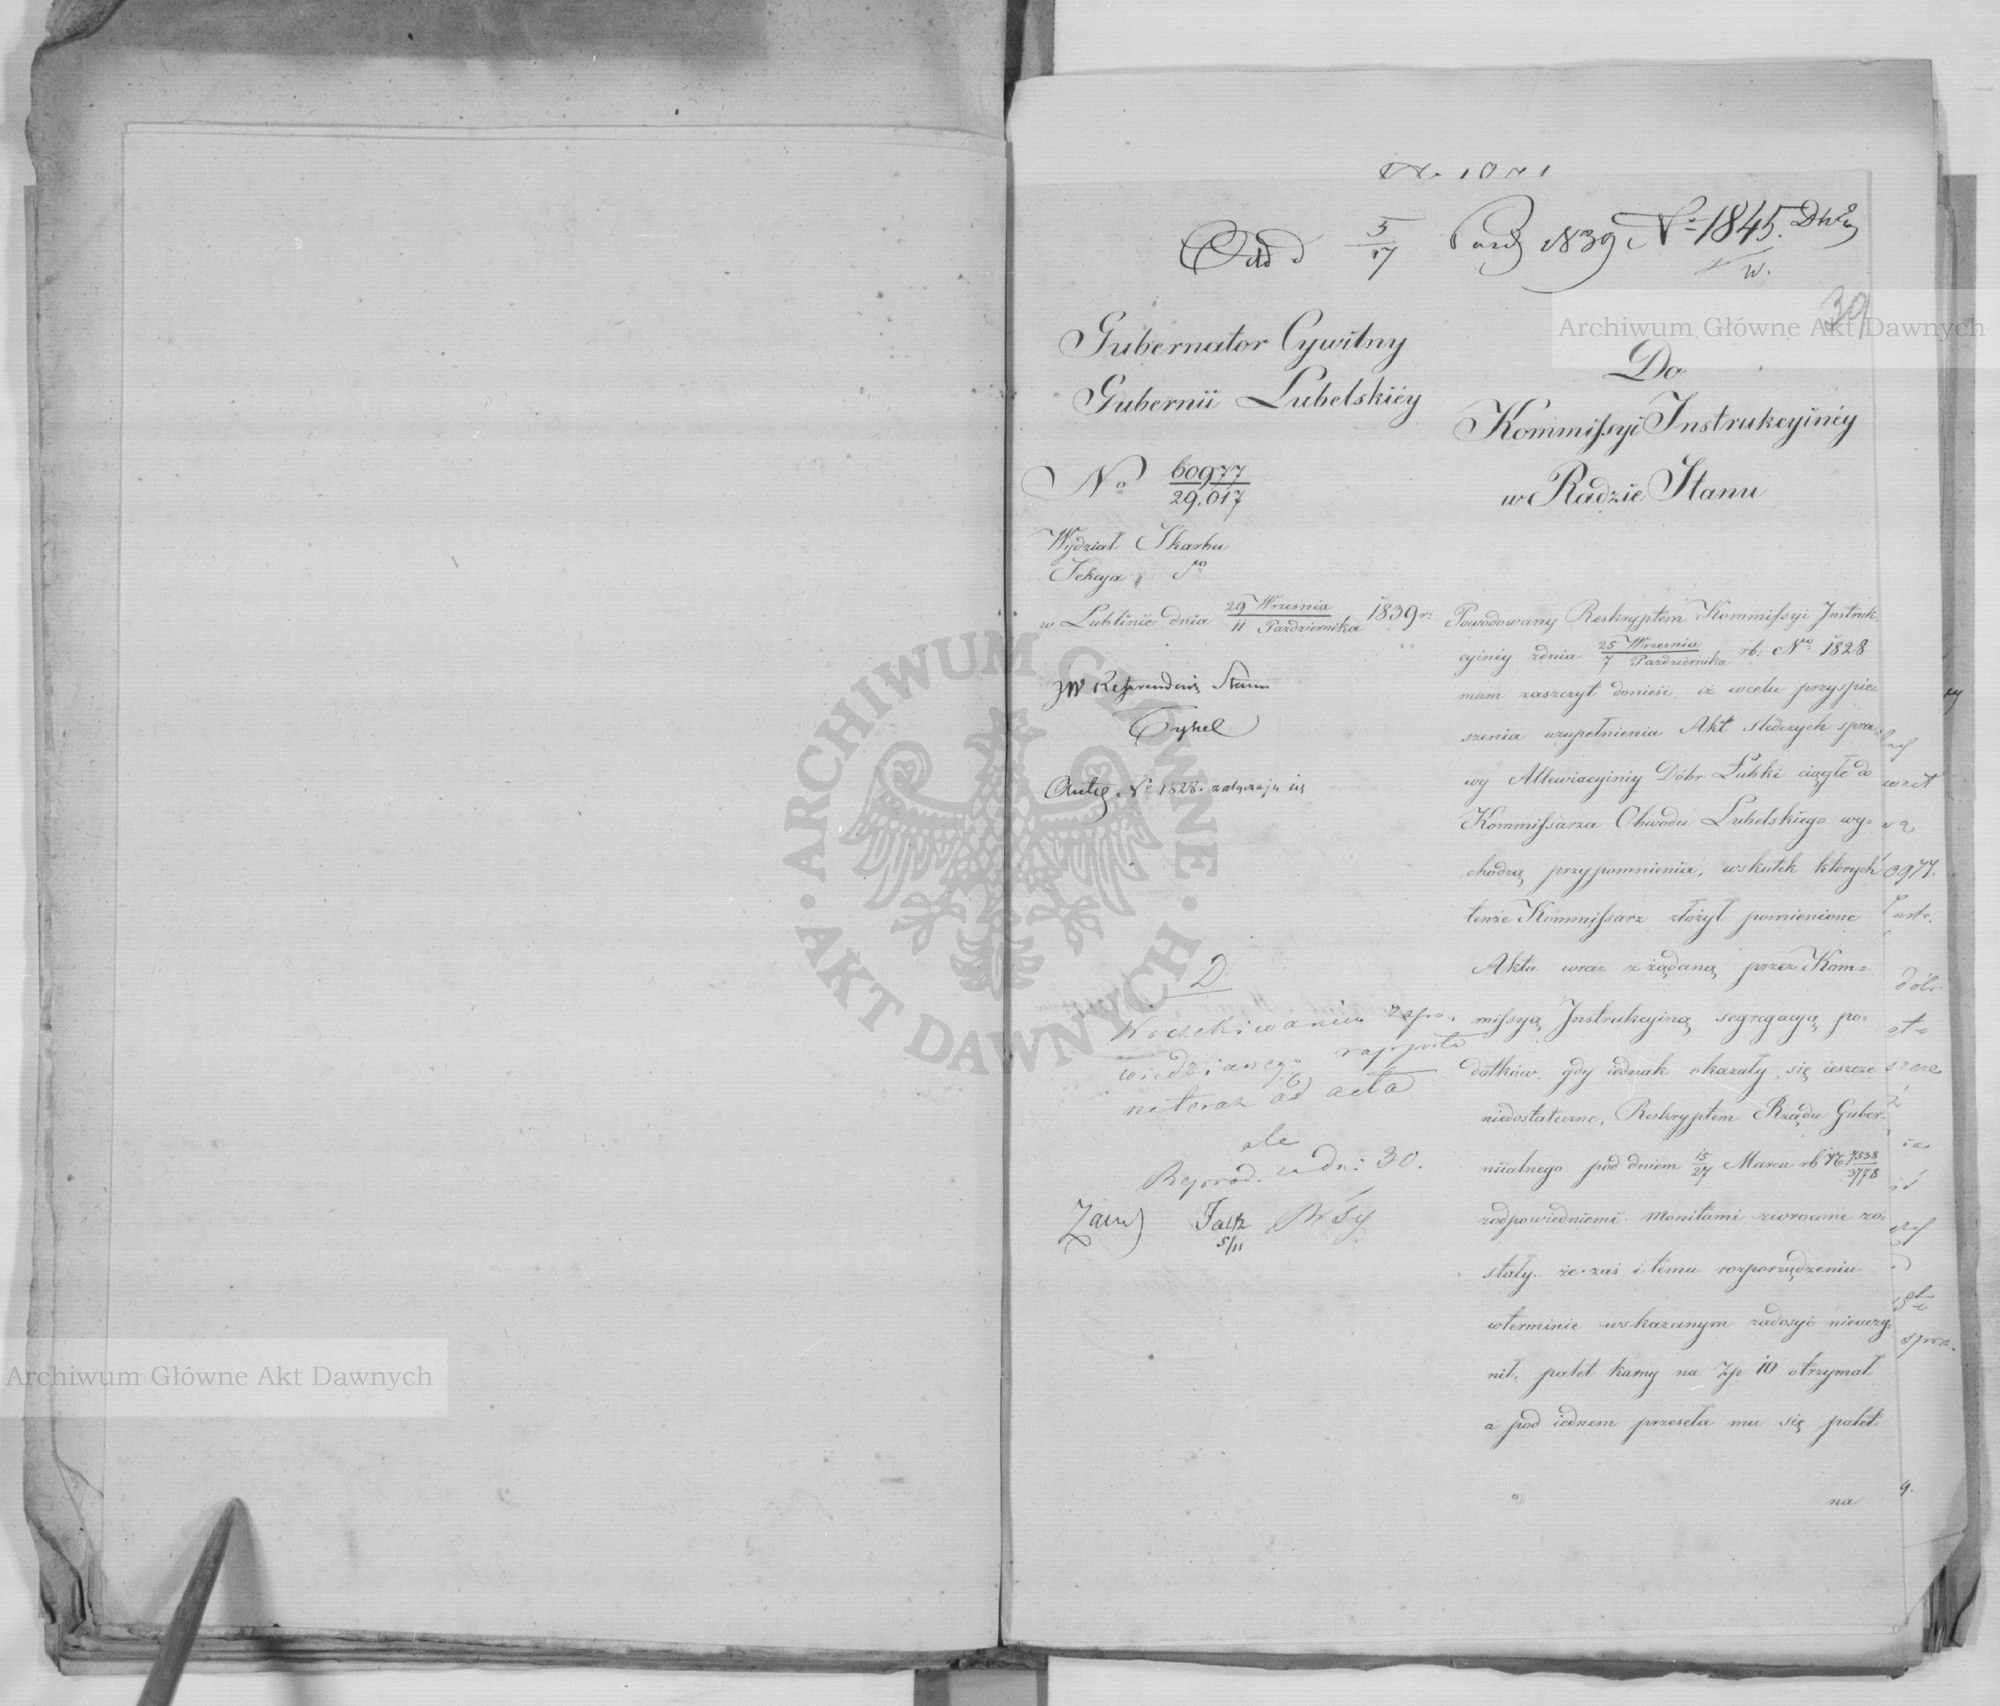 Odd d 5/17 Paźd 1839 No 1845.
w.
30
Gubernator Cywilny
Gubernii Lubelskiéy
No 60977/29.017
Wydział Skarbu
Sekcya
w Lublinie dnia 29 Września/11 Października 1839 r:
Referendarz Stanu
No 1828. załącza się
Do
Kommissyi Instrukcyinéy
w Radzie Stanu
Powodowany Reskryptem Kommissyi Instruk-
cyinéy z dnia 25 Września/7 Października rb: No 1828
mam zaszczyt donieść, iż w celu przyspie-
szenia uzupełnienia Akt śledczych spra-
wy Allewiacyinéy Dóbr Łubki ciągłe do
Kommissarza Obwodu Lubelskiego wy=
chodzą przypomnienia, wskutek których
tenże Kommissarz złożył pomienione
Akta wraz z żądaną przez Kom=
missyą Instrukcyiną segregacyą po-
datków, gdy iednak okazały się ieszcze
niedostateczne, Reskryptem Rządu Guber-
nialnego pod dniem 15/27 Marca rb No 7538/3778
z odpowiedniemi monitami zwrócone zo-
stały. że zaś i temu rozporządzeniu
w terminie wskazanym zadosyć nieuczy-
nił, palet karny na Zp 10 otrzymał
a pod iednem przeseła mu się palet
na
D
W oczekiwaniu zapo-
wiedzianego rapportu
na teraz ad acta
ale
Reprod. za dni 30.
5/11
Archiwum Główne Akt Dawnych
Archiwum Główne Akt Dawnych
ARCHIWUM GŁÓWNE · AKT DAWNYCH ·